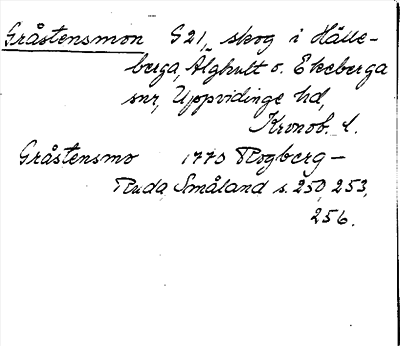 Gråstensmon S21, skog i Hälle-
berga, Älghult o. Ekeberga
snr, Uppvidinge hd,
Kronob. l.
Gråstensmo 1770 Rogberg –
Ruda Småland s. 250, 253,
256.